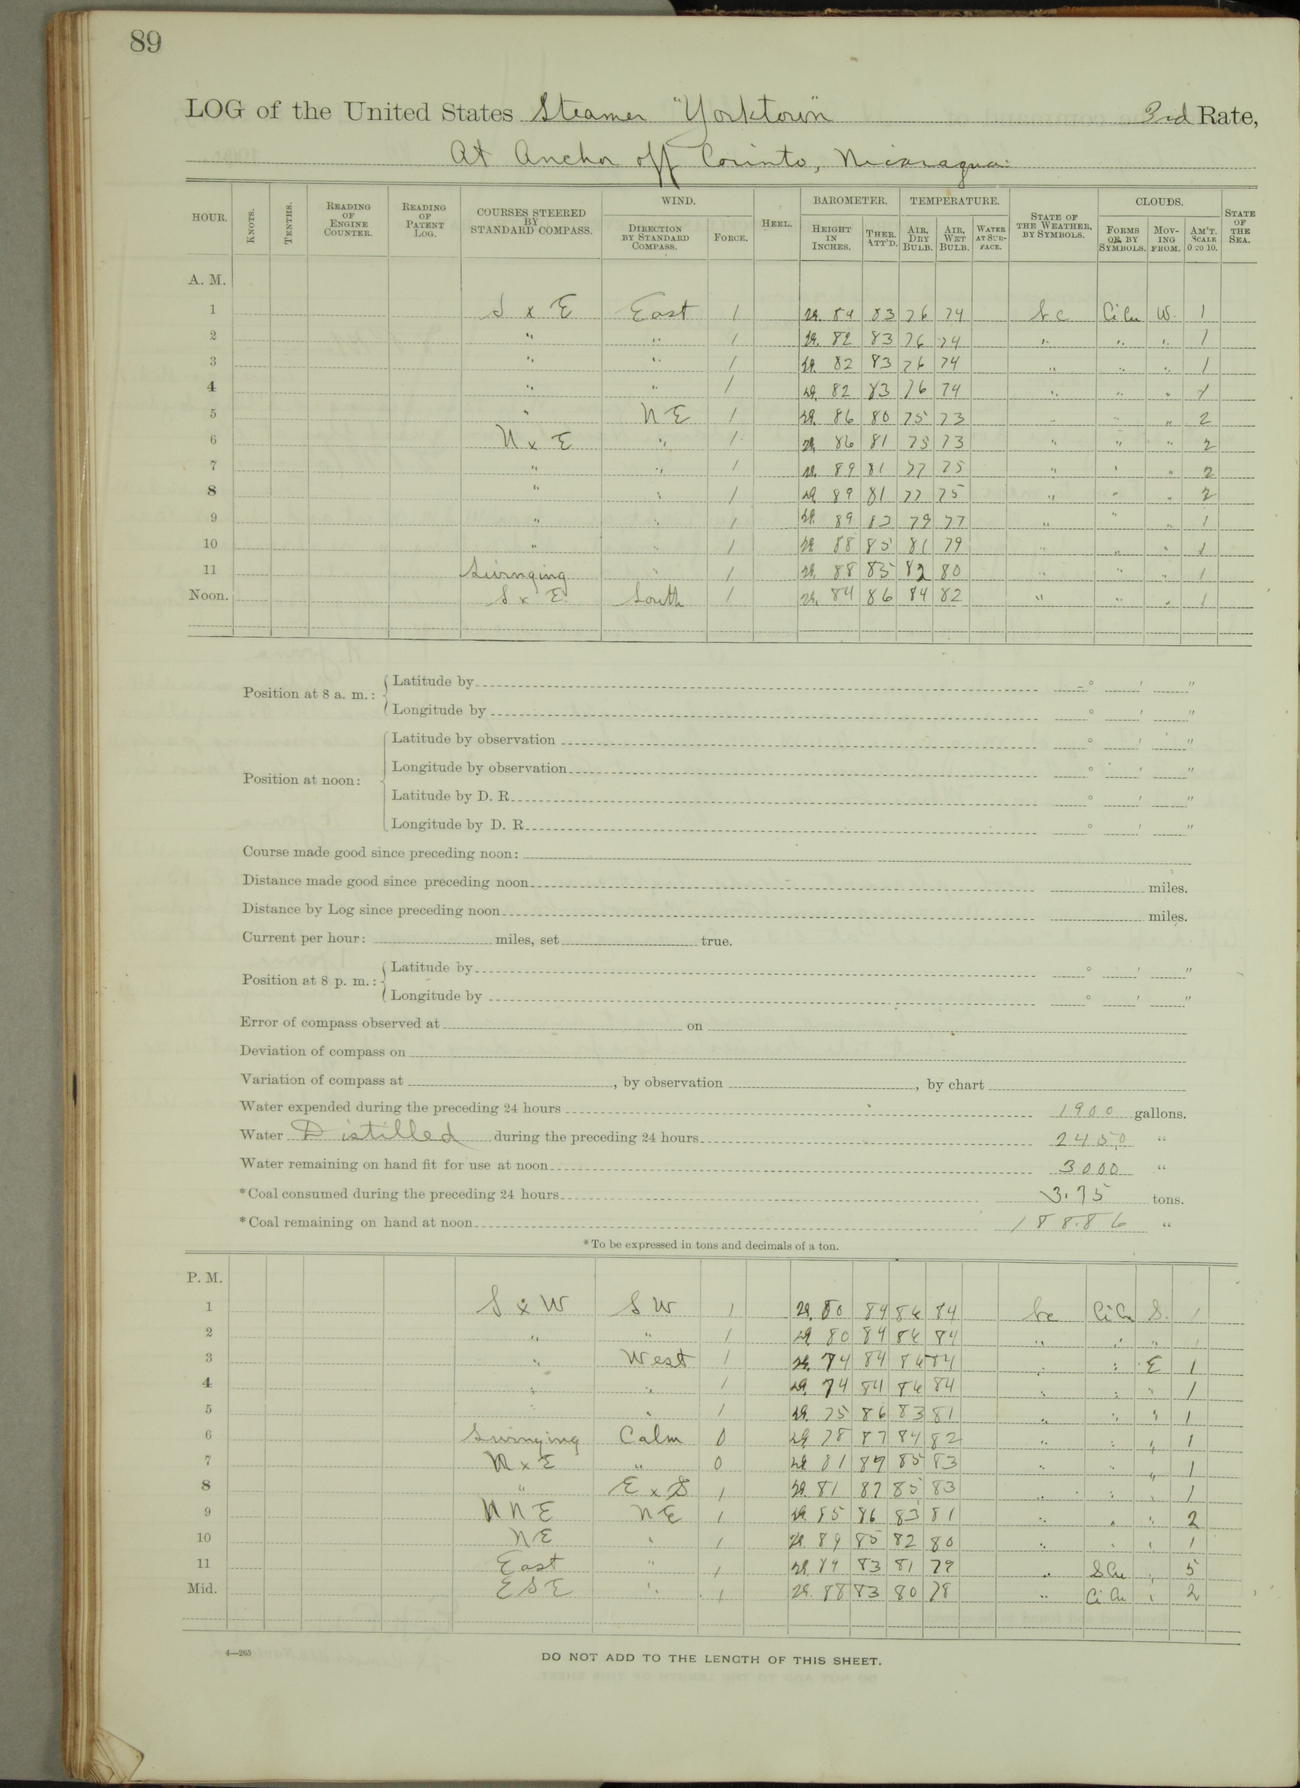 89
LOG of the United States Steamer "Yorktown" 3rd Rate,
At Anchor off Corinto, Nicaragua.
HOUR. KNOTS. TENTHS. READING OF ENGINE COUNTER. READING OF PATENT LOG. COURSES STEERED BY STANDARD COMPASS. WIND. DIRECTION BY STANDARD COMPASS. FORCE. HEEL. BAROMETER. HEIGHT IN INCHES. THER. ATT'D. TEMPERATURE. AIR, DRY BULB. AIR, WET BULB. WATER AT SURFACE. STATE OF THE WEATHER, BY SYMBOLS. CLOUDS. FORMS OF, BY SYMBOLS. MOVING FROM. AM'T. SCALE 0 TO 10. STATE OF THE SEA.
A. M.
1 S x E East 1 29. 84 83 76 74 b c Ci Cu W. 1
2 " " 1 29. 82 83 76 74 " " " 1
3 " " 1 29. 82 83 76 74 " " " 1
4 " " 1 29. 82 83 76 74 " " " 1
5 " NE 1 29. 86 80 75 73 " " " 2
6 N x E " 1 29. 86 81 75 73 " " " 2
7 " " 1 29. 89 81 77 75 " " " 2
8 " " 1 29. 89 81 77 75 " " " 2
9 " " 1 29. 89 82 79 77 " " " 1
10 " " 1 29. 88 85 81 79 " " " 1
11 Swinging " 1 29. 88 85 82 80 " " " 1
Noon. S x E South 1 29. 84 86 84 82 " " " 1
Position at 8 a. m.: Latitude by ° ′ ″
Longitude by ° ′ ″
Position at noon: Latitude by observation ° ′ ″
Longitude by observation ° ′ ″
Latitude by D. R. ° ′ ″
Longitude by D. R. ° ′ ″
Course made good since preceding noon:
Distance made good since preceding noon miles.
Distance by Log since preceding noon miles.
Current per hour: miles, set true.
Position at 8 p. m.: Latitude by ° ′ ″
Longitude by ° ′ ″
Error of compass observed at on
Deviation of compass on
Variation of compass at , by observation , by chart
Water expended during the preceding 24 hours 1900 gallons.
Water Distilled during the preceding 24 hours 2450 "
Water remaining on hand fit for use at noon 3000 "
*Coal consumed during the preceding 24 hours 3.75 tons.
*Coal remaining on hand at noon 188.86 "
*To be expressed in tons and decimals of a ton.
P. M.
1 S x W SW 1 29. 80 84 86 84 bc Ci Cu S. 1
2 " " 1 29. 80 84 86 84 " " " 1
3 " West 1 29. 74 84 86 84 " " E 1
4 " " 1 29. 74 84 86 84 " " " 1
5 " " 1 29. 75 86 83 81 " " " 1
6 Swinging Calm 0 29. 78 87 84 82 " " " 1
7 N x E " 0 29. 81 87 85 83 " " " 1
8 " E x S 1 29. 81 87 85 83 " " " 1
9 NNE NE 1 29. 85 86 83 81 " " " 2
10 NE " 1 29. 89 85 82 80 " " " 1
11 East " 1 29. 89 83 81 79 " S Cu " 5
Mid. ESE " 1 29. 88 83 80 78 " Ci Cu " 2
4—265
DO NOT ADD TO THE LENGTH OF THIS SHEET.